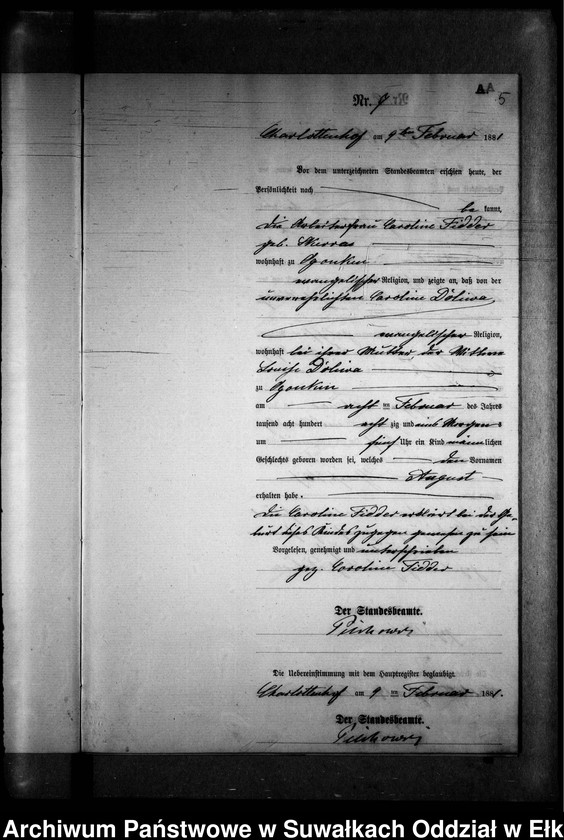 AA
5
Nr. 7
Charlottenhof am 9ten Februar 1881
Vor dem unterzeichneten Standesbeamten erschien heute, der
Persönlichkeit nach
be kannt,
die Arbeiterfrau Caroline Fidder
geb.
wohnhaft zu
evangelischer Religion, und zeigte an, daß von der
unverehelichten Caroline Doliwa,
evangelischer Religion,
wohnhaft bei ihrer Mutter, der Wittwe
Louise Doliwa
zu
am acht ten Februar des Jahres
tausend acht hundert acht zig und eins Morgens
um fünf Uhr ein Kind männlichen
Geschlechts geboren worden sei, welches den Vornamen
August
erhalten habe.
Die Caroline Fidder erklärt bei der Ge-
burt dieses Kindes zugegen gewesen zu sein
Vorgelesen, genehmigt und unterschrieben
gez. Caroline Fidder
Der Standesbeamte.
Die Uebereinstimmung mit dem Hauptregister beglaubigt.
Charlottenhof am 9 ten Februar 1881.
Der Standesbeamte.
Archiwum Państwowe w Suwałkach Oddział w Ełk